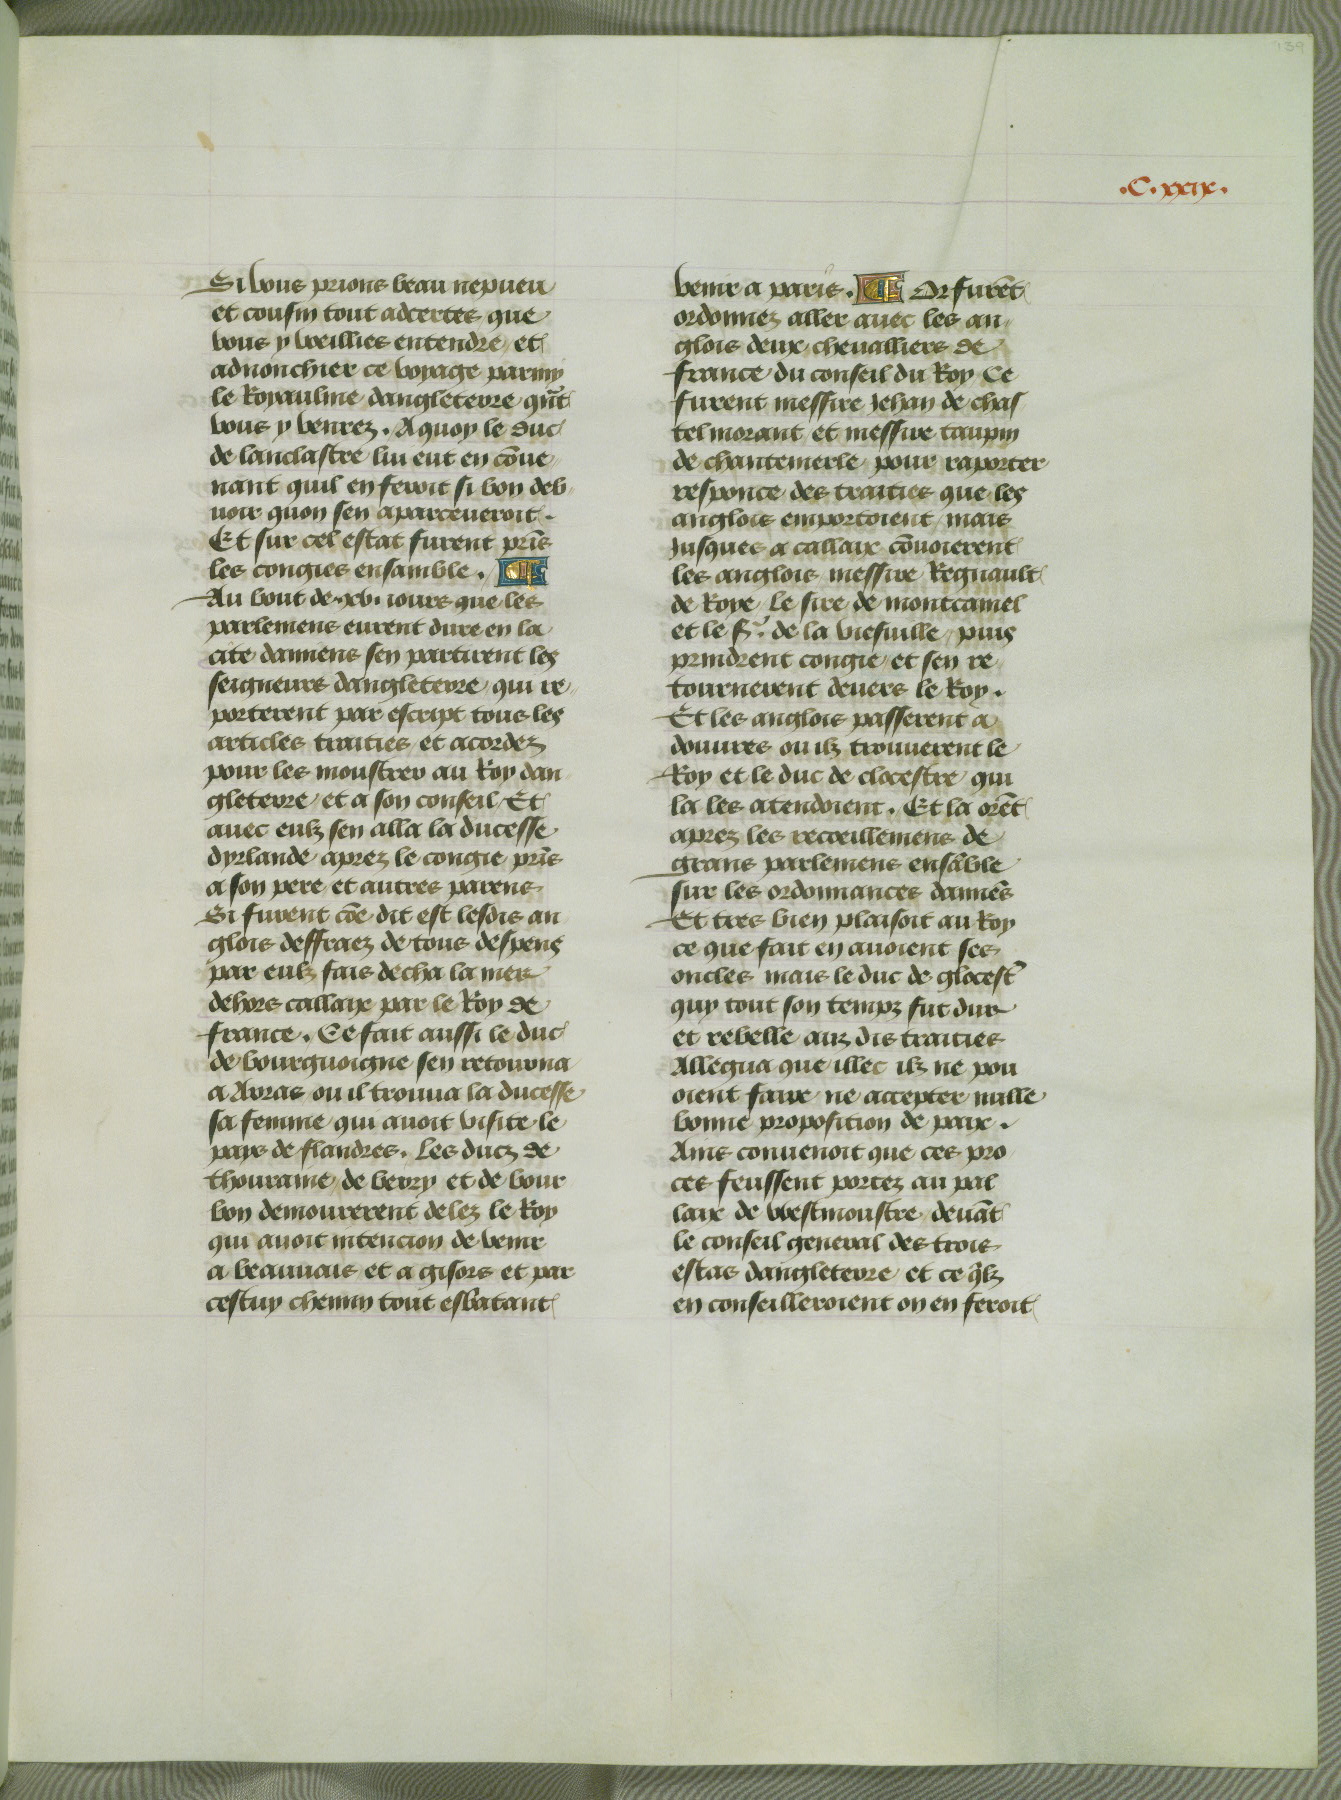 139
.C.xxix.
Si vous prions beau nepueu
et cousin tout adcertes que
vous y vueillies entendre et
adnonchier ce voyage parmy
le Royaulme dangleterre qu̅t
vous y venrez. A quoy le duc
de lanclastre lui eut en co̅ue
nant quil en feroit si bon deb
uoir quon sen aparceueroit.
Et sur cel estat furent pri̅s
les congies ensamble. ¶
Au bout de .xv. iours que les
parlemens eurent dure en la
cite damiens sen partirent les
seigneurs dangleterre qui re
porterent par escript tous les
articles traities et acordez
pour les moustrer au Roy dan
gleterre et a son conseil Et
auec eulz sen alla la ducesse
dyrlande aprez le congie pri̅s
a son pere et autres parens
Si furent co̅e dit est lesdis an
glois deffraez de tous despens
par eulz fais decha la mer
dehors callaix par le Roy de
france. Ce fait aussi le duc
de bourguoigne sen retourna
a Arras ou il trouua la ducesse
sa femme qui auoit visite le
pays de flandres. Les ducz de
thouraine de berry et de bour
bon demourerent delez le Roy
qui auoit intencion de venir
a beauuais et a gisors et par
cestuy chemin tout esbatant
venir a paris. ¶ Or fure̅t
ordonnez aller auec les an
glois deux chevalliers de
france du conseil du Roy Ce
furent messire Jehan de chas
telmorant et messire taupin
de chantemerle pour raporter
responce des traities que les
anglois emportoient mais
Jusques a callaix co̅uoierent
les anglois messire Regnault
de Roye le sire de montcamel
et le sr. de la viesuille puis
prindrent congie et sen re
tournerent deuers le Roy.
Et les anglois passerent a
douures ou ilz trouuerent le
Roy et le duc de clocestre qui
la les atendoient. Et la ore̅t
aprez les recoeillemens de
grans parlemens ensa̅ble
sur les ordonnances damie̅s
Et tres bien plaisoit au Roy
ce que fait en auoient ses
oncles mais le duc de glocest̾
quy tout son tempz fut dur
et rebelle auz dis traities
Allegua que illec ilz ne pou
oient faire ne accepter nulle
bonne proposition de paix.
Ains conuenoit que ces pro
ces feussent portez au pal
laix de westmoustre deua̅t
le conseil general des trois
estas dangleterre et ce q̅lz
en conseilleroient on en feroit